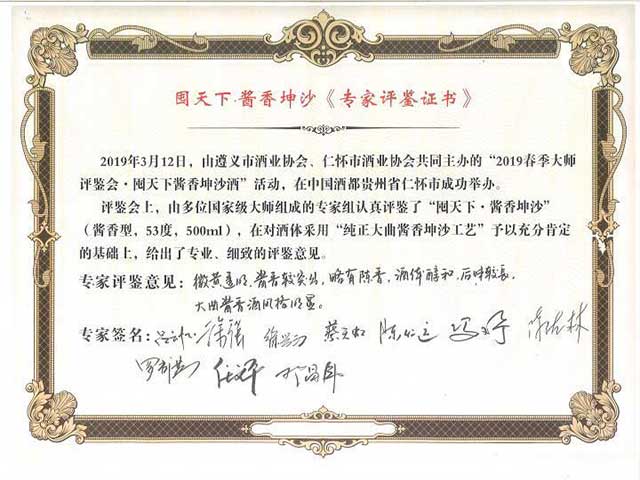 囤天下·酱香坤沙《专家评鉴证书》
2019年3月12日，由遵义市酒业协会、仁怀市酒业协会共同主办的“2019春季大师
评鉴会·囤天下酱香坤沙酒”活动，在中国酒都贵州省仁怀市成功举办。
评鉴会上，由多位国家级大师组成的专家组认真评鉴了“囤天下·酱香坤沙”
（酱香型，53度，500ml），在对酒体采用“纯正大曲酱香坤沙工艺”予以充分肯定
的基础上，给出了专业、细致的评鉴意见。
专家评鉴意见：微黄透明，酱香较突出，略有陈香，酒体醇和，后味较长，
大曲酱香酒风格明显。
专家签名： 徐强